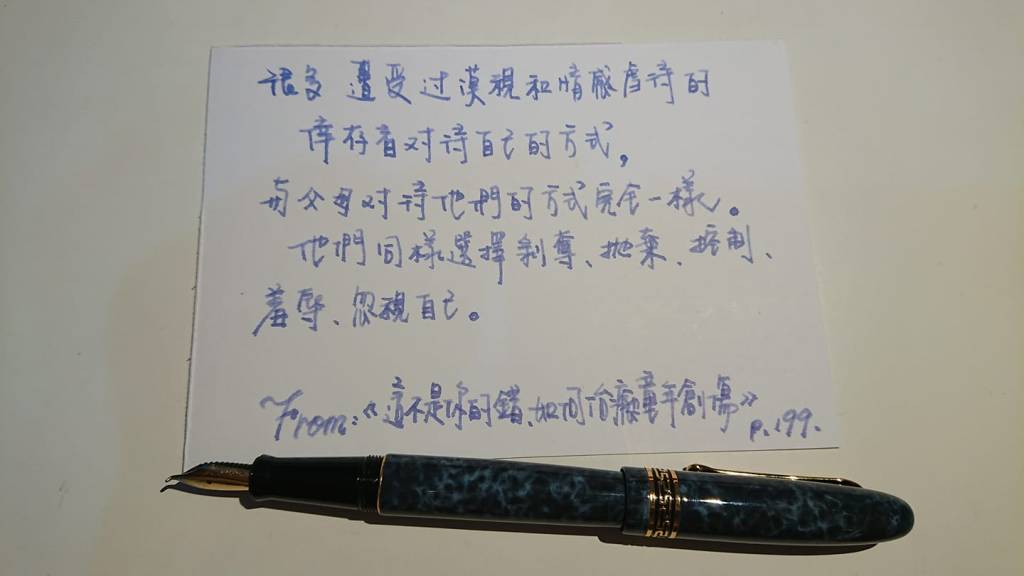 很多 遭受过漠視和情感虐待的
倖存者对待自己的方式，
与父母对待他們的方式完全一樣。
他們同樣選擇剝奪、抛棄、控制、
羞辱、忽視自己。
From:《這不是你的錯、如何治癒童年創傷》
p.199.